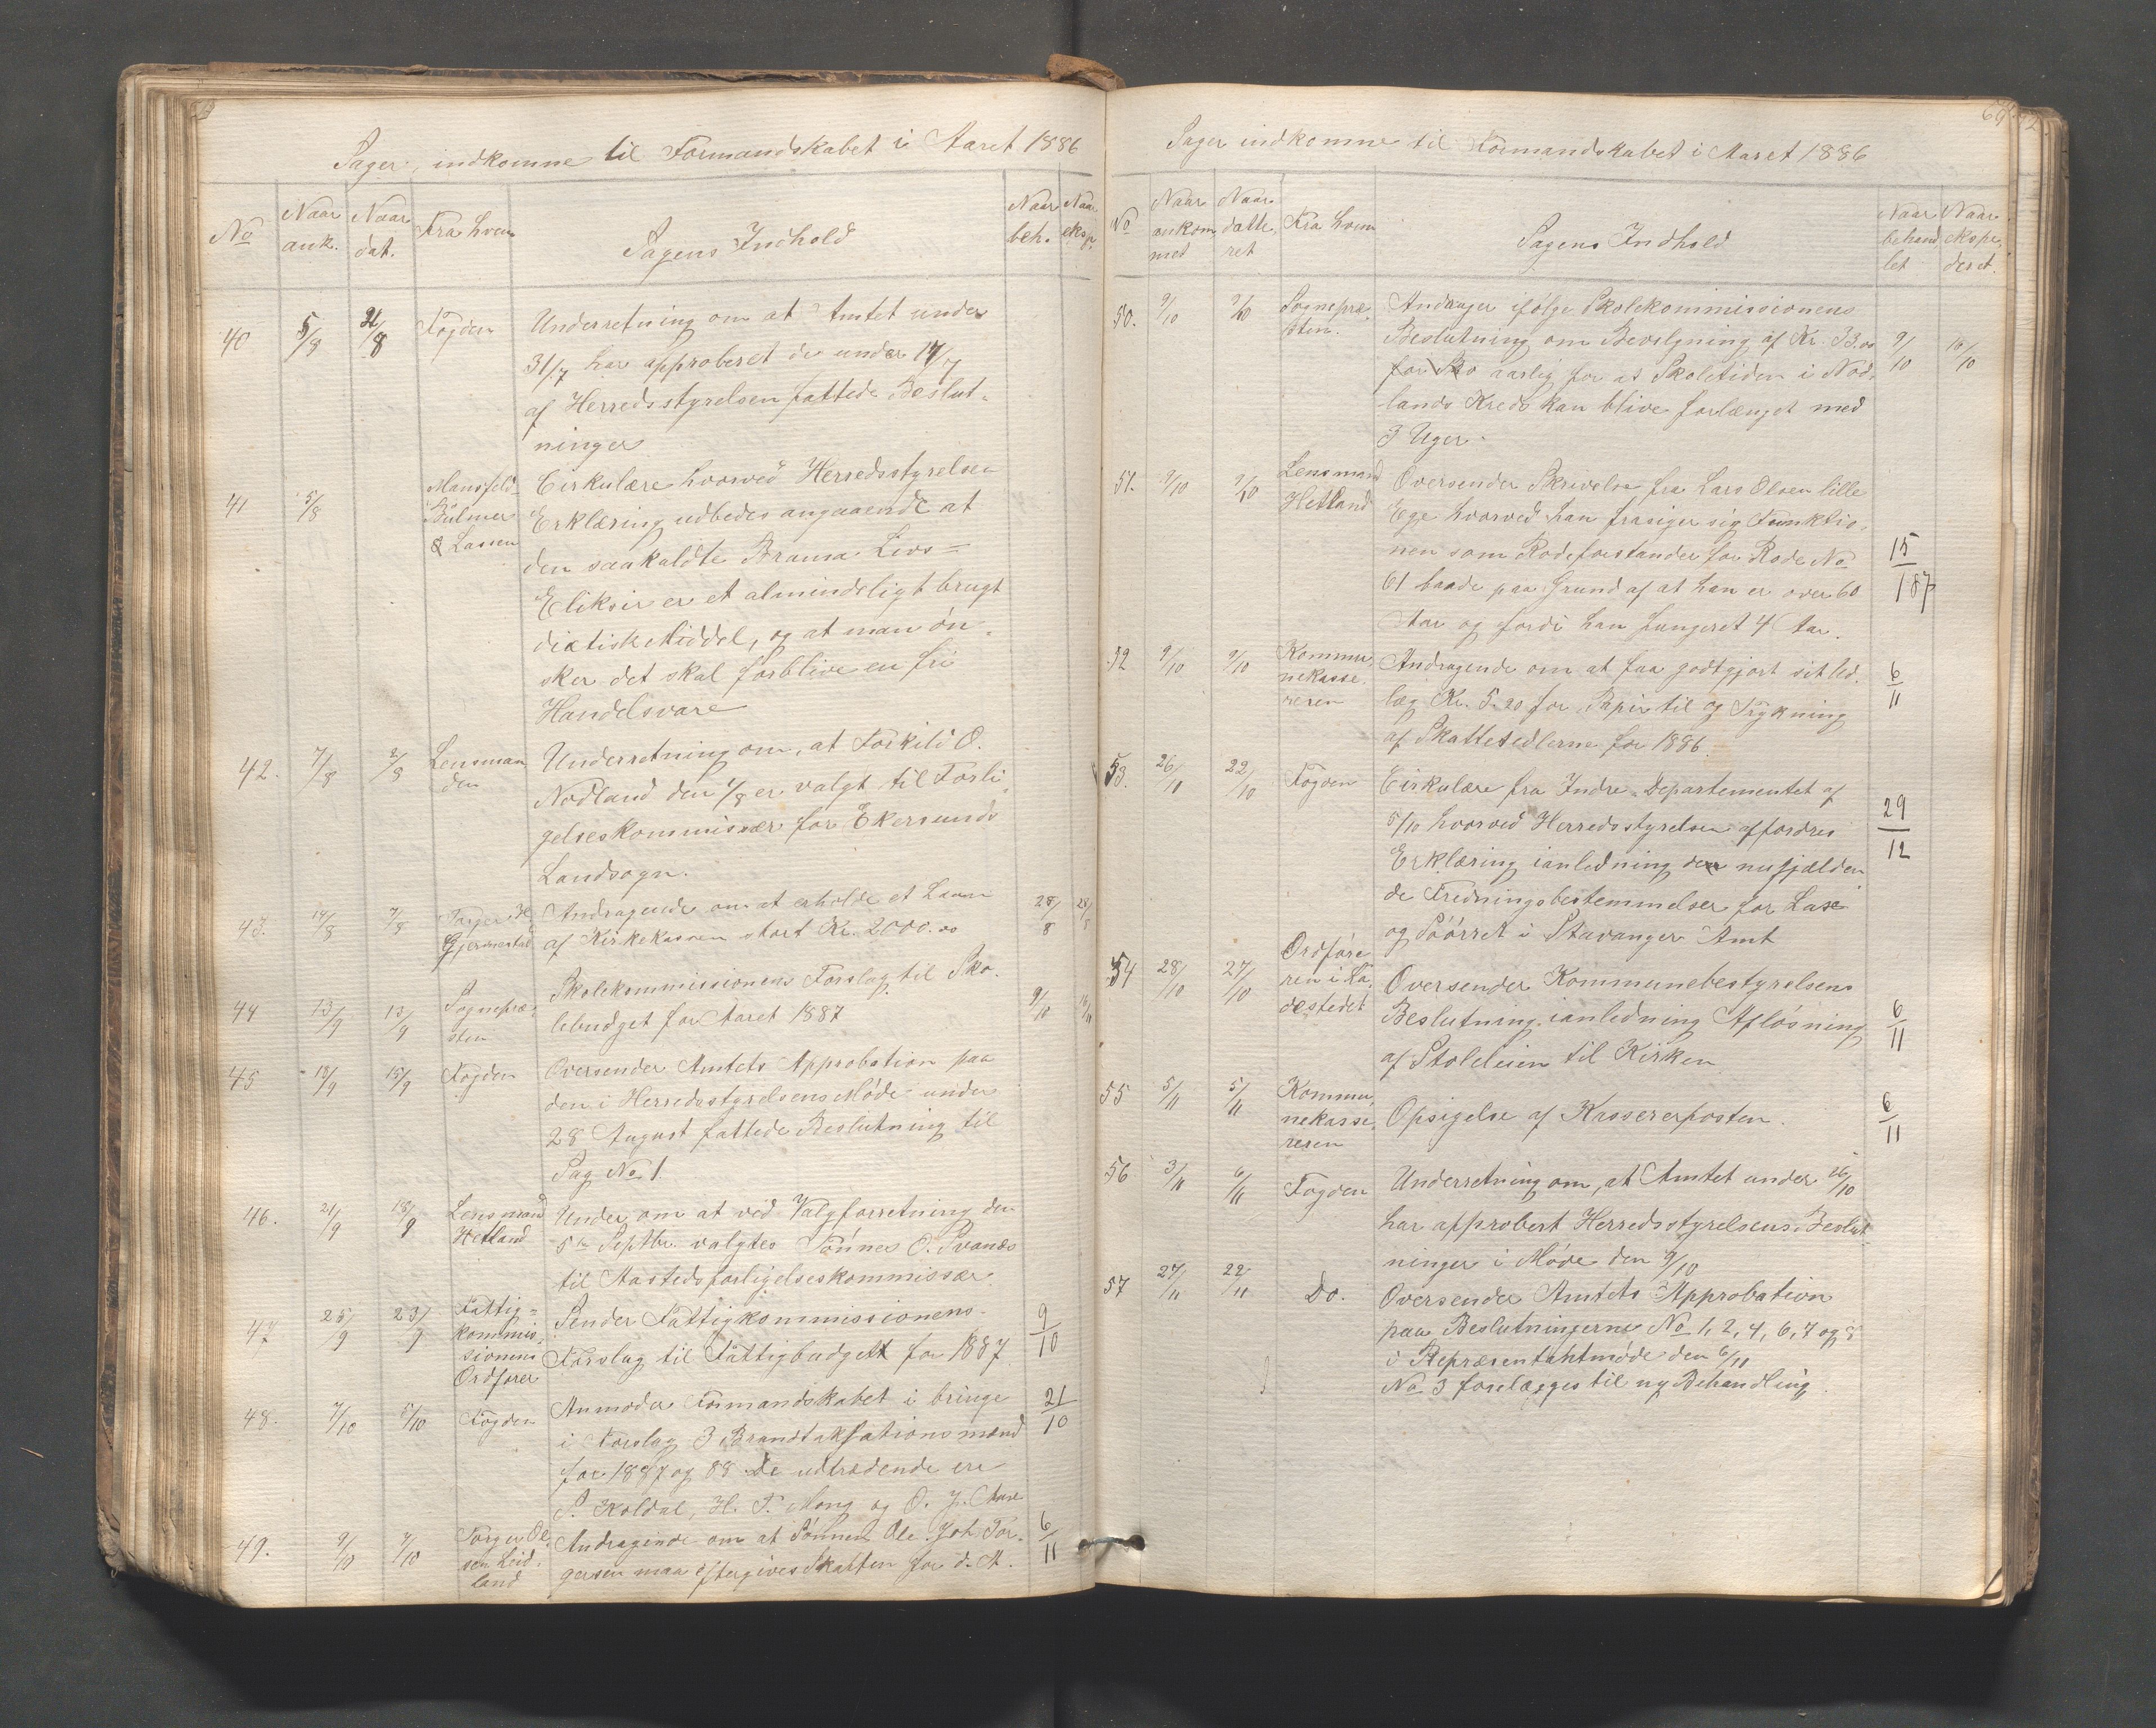 Sager, indkomne til Formandskabet i Aaret 1886
No
Naar ank.
Naar dat.
Fra hvem
Sagens Indhold
Naar beh.
Naar eksp.
40 5/8 2/8 Fogden Underretning om at Amtet under
31/7 har approberet de under 17/7
af Herredsstyrelsen fattede Beslut-
ninger
41 5/8 Mansfeld Bülner & Lassen Cirkulære hvorved Herredsstyrelsen
Erklæring udbedes angaaende at
den saakaldte Brama Livs=
Eliksir er et almindeligt brugt
diætisk Middel, og at man øn-
sker det skal forblive en fri
Handelsvare
42. 7/8 2/8 Lensmanden Underretning om, at Torkild O.
Nodland den 1/8 er valgt til Forli-
gelseskommissær for Ekersunds
Landsogn.
43. 14/8 7/8 Torger H. Gjermestad Andragende om at erholde et Laan 28/8 28/8
af Kirkekassen stort Kr. 2000.00
44 13/9 13/9 Sognepræsten Skolekommissionens Forslag til Sko-
lebudget for Aaret 1887 9/10 16/10
45 18/9 15/9 Fogden Oversender Amtets Approbation paa
den i Herredsstyrelsens Møde under
28 August fattede Beslutning til
Sag No 1.
46. 21/9 18/9 Lensmand Hetland Under. om at ved Valgforretning den
5te Septbr. valgtes Tønnes O. Svanes
til Aastedsforligelseskommissær.
47 25/9 23/9 Fattig=kommissionens Ordfører Sender Fattigkommissionens
Forslag til Fattigbudgett for 1887 9/10
48. 7/10 5/10 Fogden Anmoder Formandskabet i bringe 21/10
i Forslag 3 Brandtaksationsmænd
for 1887 og 88 De udtrædende ere
S. Koldal, H. T. Mong og O. J. Aase
49. 9/10 7/10 Torger Olsen Leidland Andragende om at Sønnen Ole Joh. Tor- 6/11
gersen maa eftergives Skatten for d. A.
Sager indkomne til Formandskabet i Aaret 1886
No
Naar ankommet
Naar datteret
Fra hvem
Sagens Indhold
Naar behandlet
Naar ekspederet.
50. 9/10 9/10 Sognepræsten. Andrager ifølge Skolekommissionens
Beslutning om Bevilgning af Kr. 33.00 9/10 16/10
for Sko aarlig for at Skoletiden i Nod-
lands Kreds kan blive forlænget med
3 Uger.
51. 9/10 9/10 Lensmand Hetland Oversender Skrivelse fra Lars Olsen lille
Ege hvorved han frasiger sig Funktio-
nen som Rodeforstander for Rode No 15/1 87
61 baade paa Grund af at han er over 60
Aar og fordi han fungeret 4 Aar.
52 9/10 9/10 Kommunekassereren Andragende om at faa godtgjort sit Ud- 6/11
læg Kr. 5.20 for Papir til og Trykning
af Skattesedlerne for 1886.
53. 26/10 22/10 Fogden Cirkulære fra Indre-Departementet af
5/10 hvorved Herredsstyrelsen affordres 29/12
Erklæring ianledning de nu gjælden
de Fredningsbestemmelser for Laxe
og Søørret i Stavanger Amt
54 28/10 27/10 Ordføreren i Ladestedet Oversender Kommunebestyrelsens
Beslutning ianledning Afløsning 6/11
af Stoleleien til Kirken
55 5/11 5/11 Kommunekassereren Opsigelse af Kassererposten. 6/11
56 3/11 6/11 Fogden Underretning om, at Amtet under 26/10
har approbert Herredsstyrelsens Beslut-
ninger i Møde den 9/10
57 27/11 22/11 Do. Oversender Amtets Approbation
paa Beslutningerne No 1, 2, 4, 6, 7 og 8
i Repræsentantmøde den 6/11
No 3 forelægges til ny Behandling.